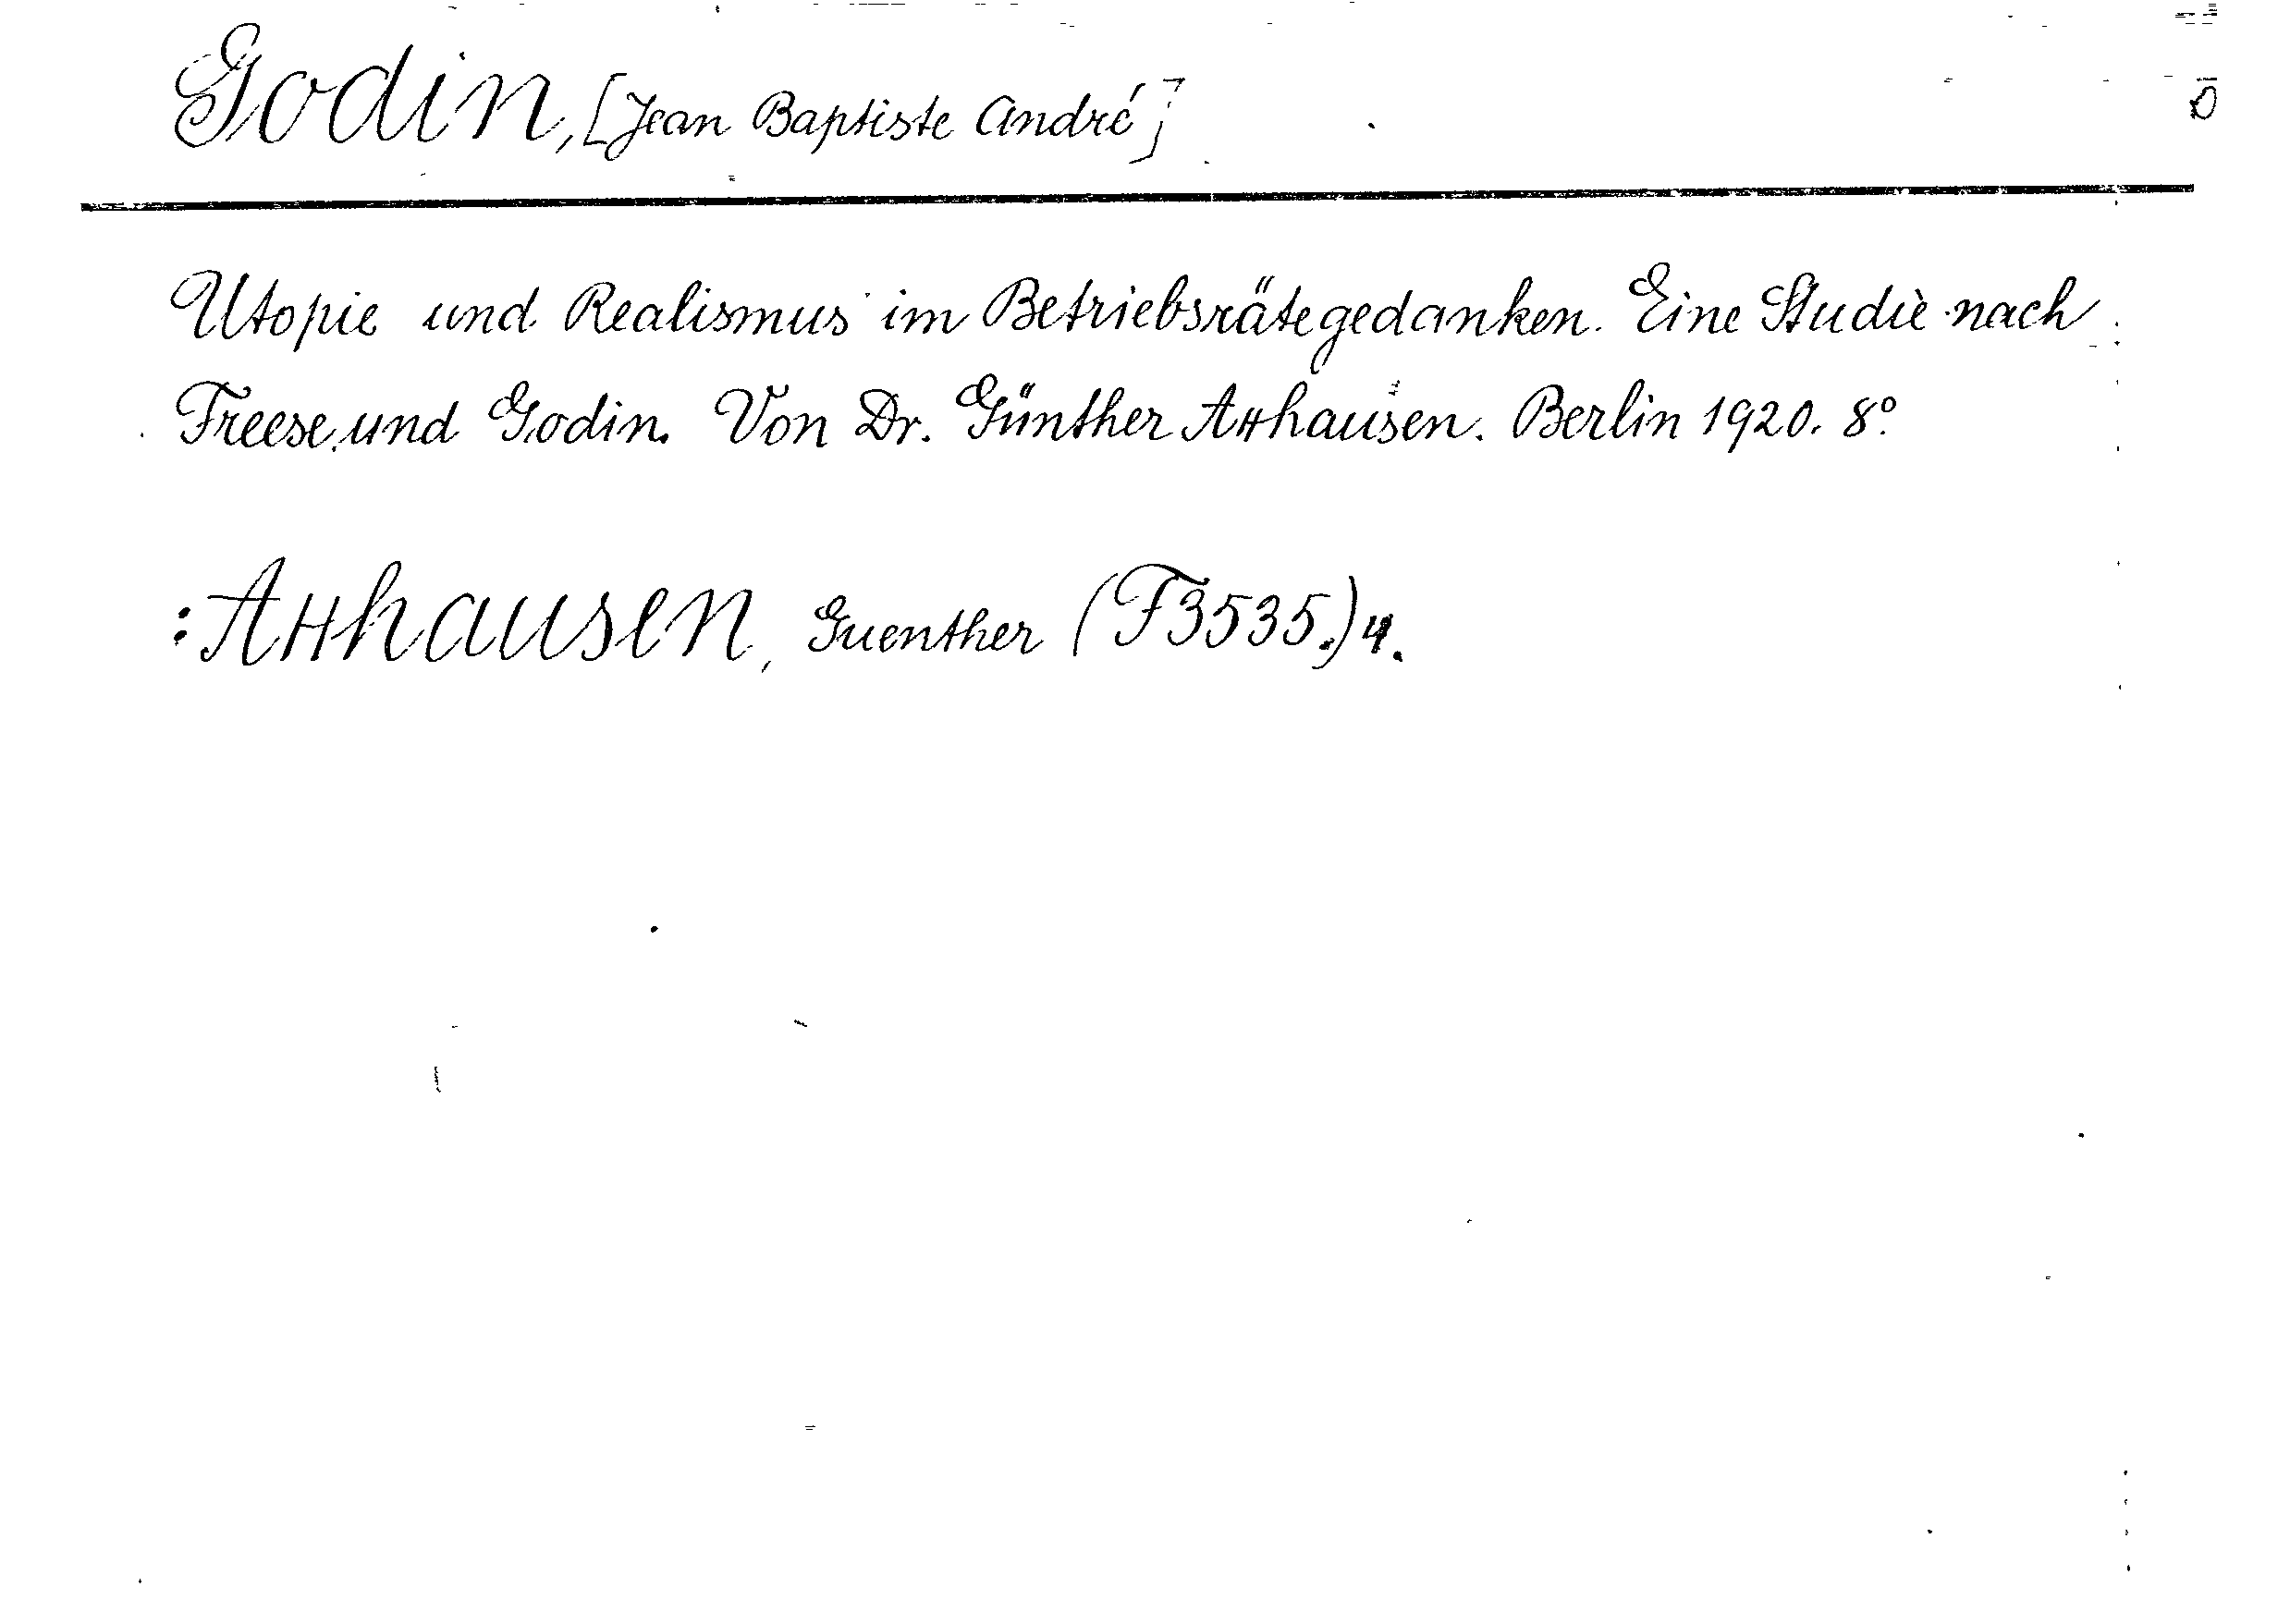 Godin, [Jean Baptiste André]
Utopie und Realismus im Betriebsrätegedanken. Eine Studie nach
Freese und Godin. Von Dr. Günther Axhausen. Berlin 1920. 8°.
: Axhausen, Guenther (F3535.) 4.